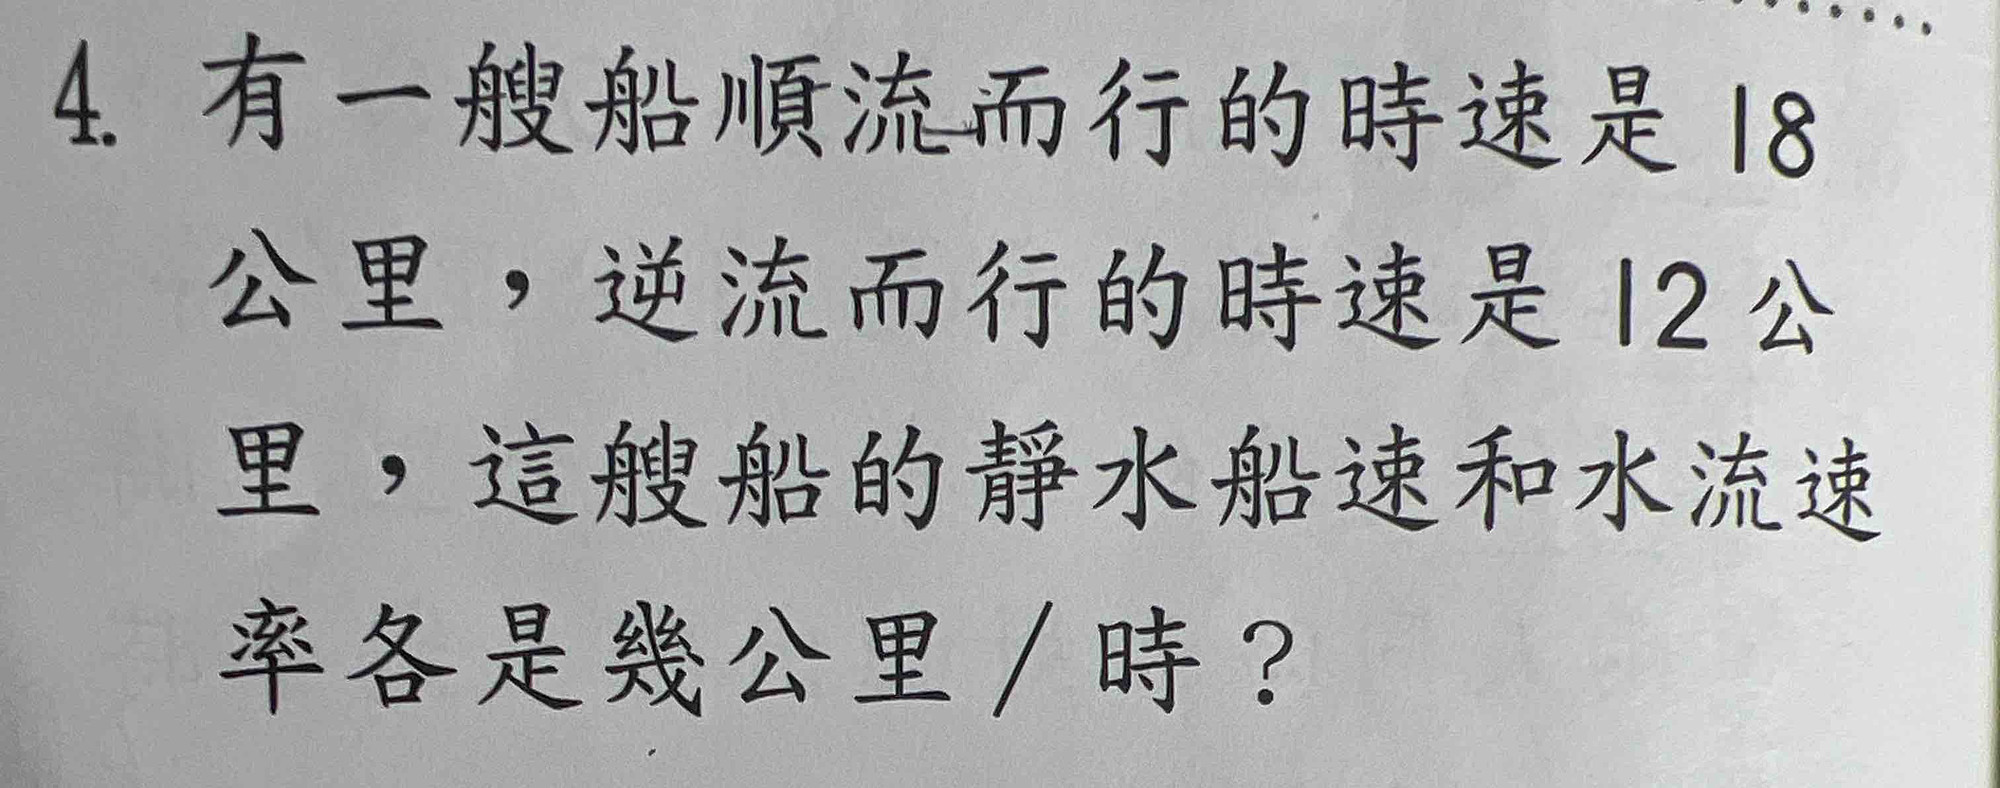 4. 有一艘船順流而行的時速是18
公里，逆流而行的時速是12公
里，這艘船的靜水船速和水流速
率各是幾公里／時？